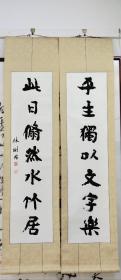 平生獨以文字樂
此日翛然水竹居